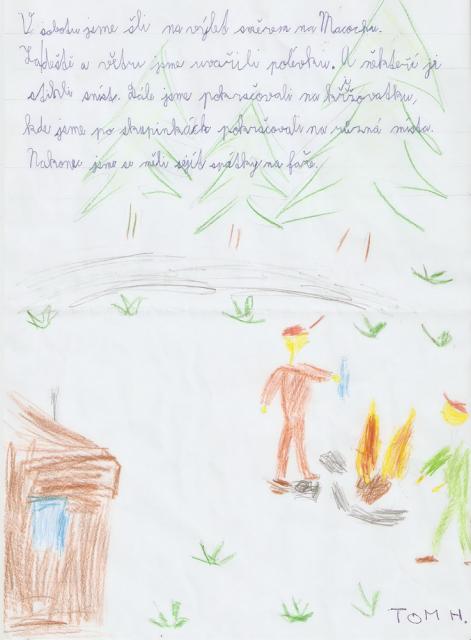 V sobotu jsme šli na výlet směrem na Macochu.
Za deště a větru jsme uvařili polévku. A někteří ji
stihli sníst. Dále jsme pokračovali na křižovatku,
kde jsme po skupinkách pokračovali na různá místa.
Nakonec jsme se měli sejít zpátky na faře.
TOM H.